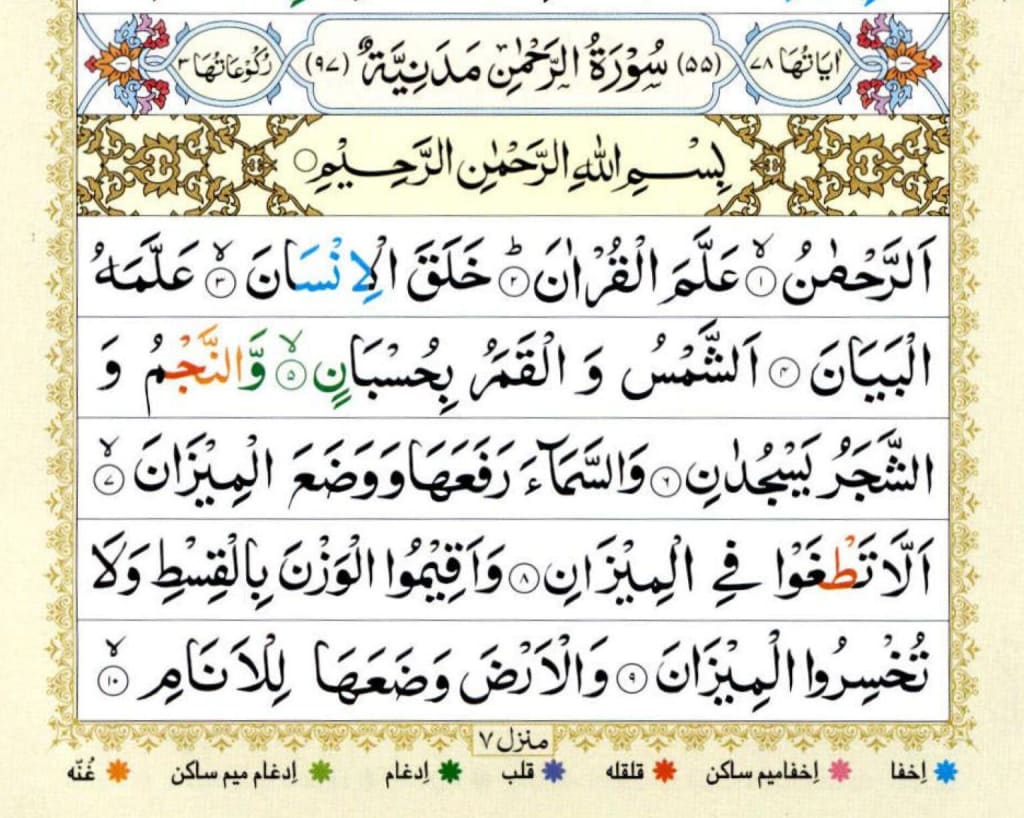 اٰيَاتُهَا ٧٨ (٥٥) سُوْرَةُ الرَّحْمٰنِ مَدَنِيَّةٌ (٩٧) رُكُوْعَاتُهَا ٣
بِسْمِ اللّٰهِ الرَّحْمٰنِ الرَّحِيْمِ
اَلرَّحْمٰنُ ۙ‏﴿١﴾ عَلَّمَ الْقُرْاٰنَ ؕ‏﴿٢﴾ خَلَقَ الْاِنْسَانَ ۙ‏﴿٣﴾ عَلَّمَهُ
الْبَيَانَ ‏﴿٤﴾ اَلشَّمْسُ وَ الْقَمَرُ بِحُسْبَانٍ ۙ‏﴿٥﴾ وَّالنَّجْمُ وَ
الشَّجَرُ يَسْجُدٰنِ ‏﴿٦﴾ وَالسَّمَآءَ رَفَعَهَا وَوَضَعَ الْمِيْزَانَ ۙ‏﴿٧﴾
اَلَّا تَطْغَوْا فِي الْمِيْزَانِ ‏﴿٨﴾ وَاَقِيْمُوا الْوَزْنَ بِالْقِسْطِ وَلَا
تُخْسِرُوا الْمِيْزَانَ ‏﴿٩﴾ وَالْاَرْضَ وَضَعَهَا لِلْاَنَامِ ۙ‏﴿١٠﴾
منزل ٧
اِخفا اِخفامیم ساکن قلقله قلب اِدغام اِدغام میم ساکن غُنّه